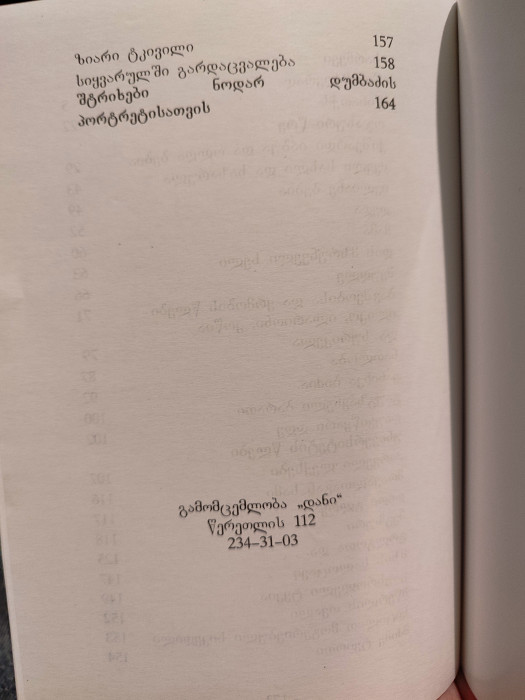 ზიარი ტკივილი 157
სიყვარულში გარდაცვალება 158
შტრიხები ნოდარ დუმბაძის
პორტრეტისათვის 164
გამომცემლობა „დანი“
წერეთლის 112
234–31–03